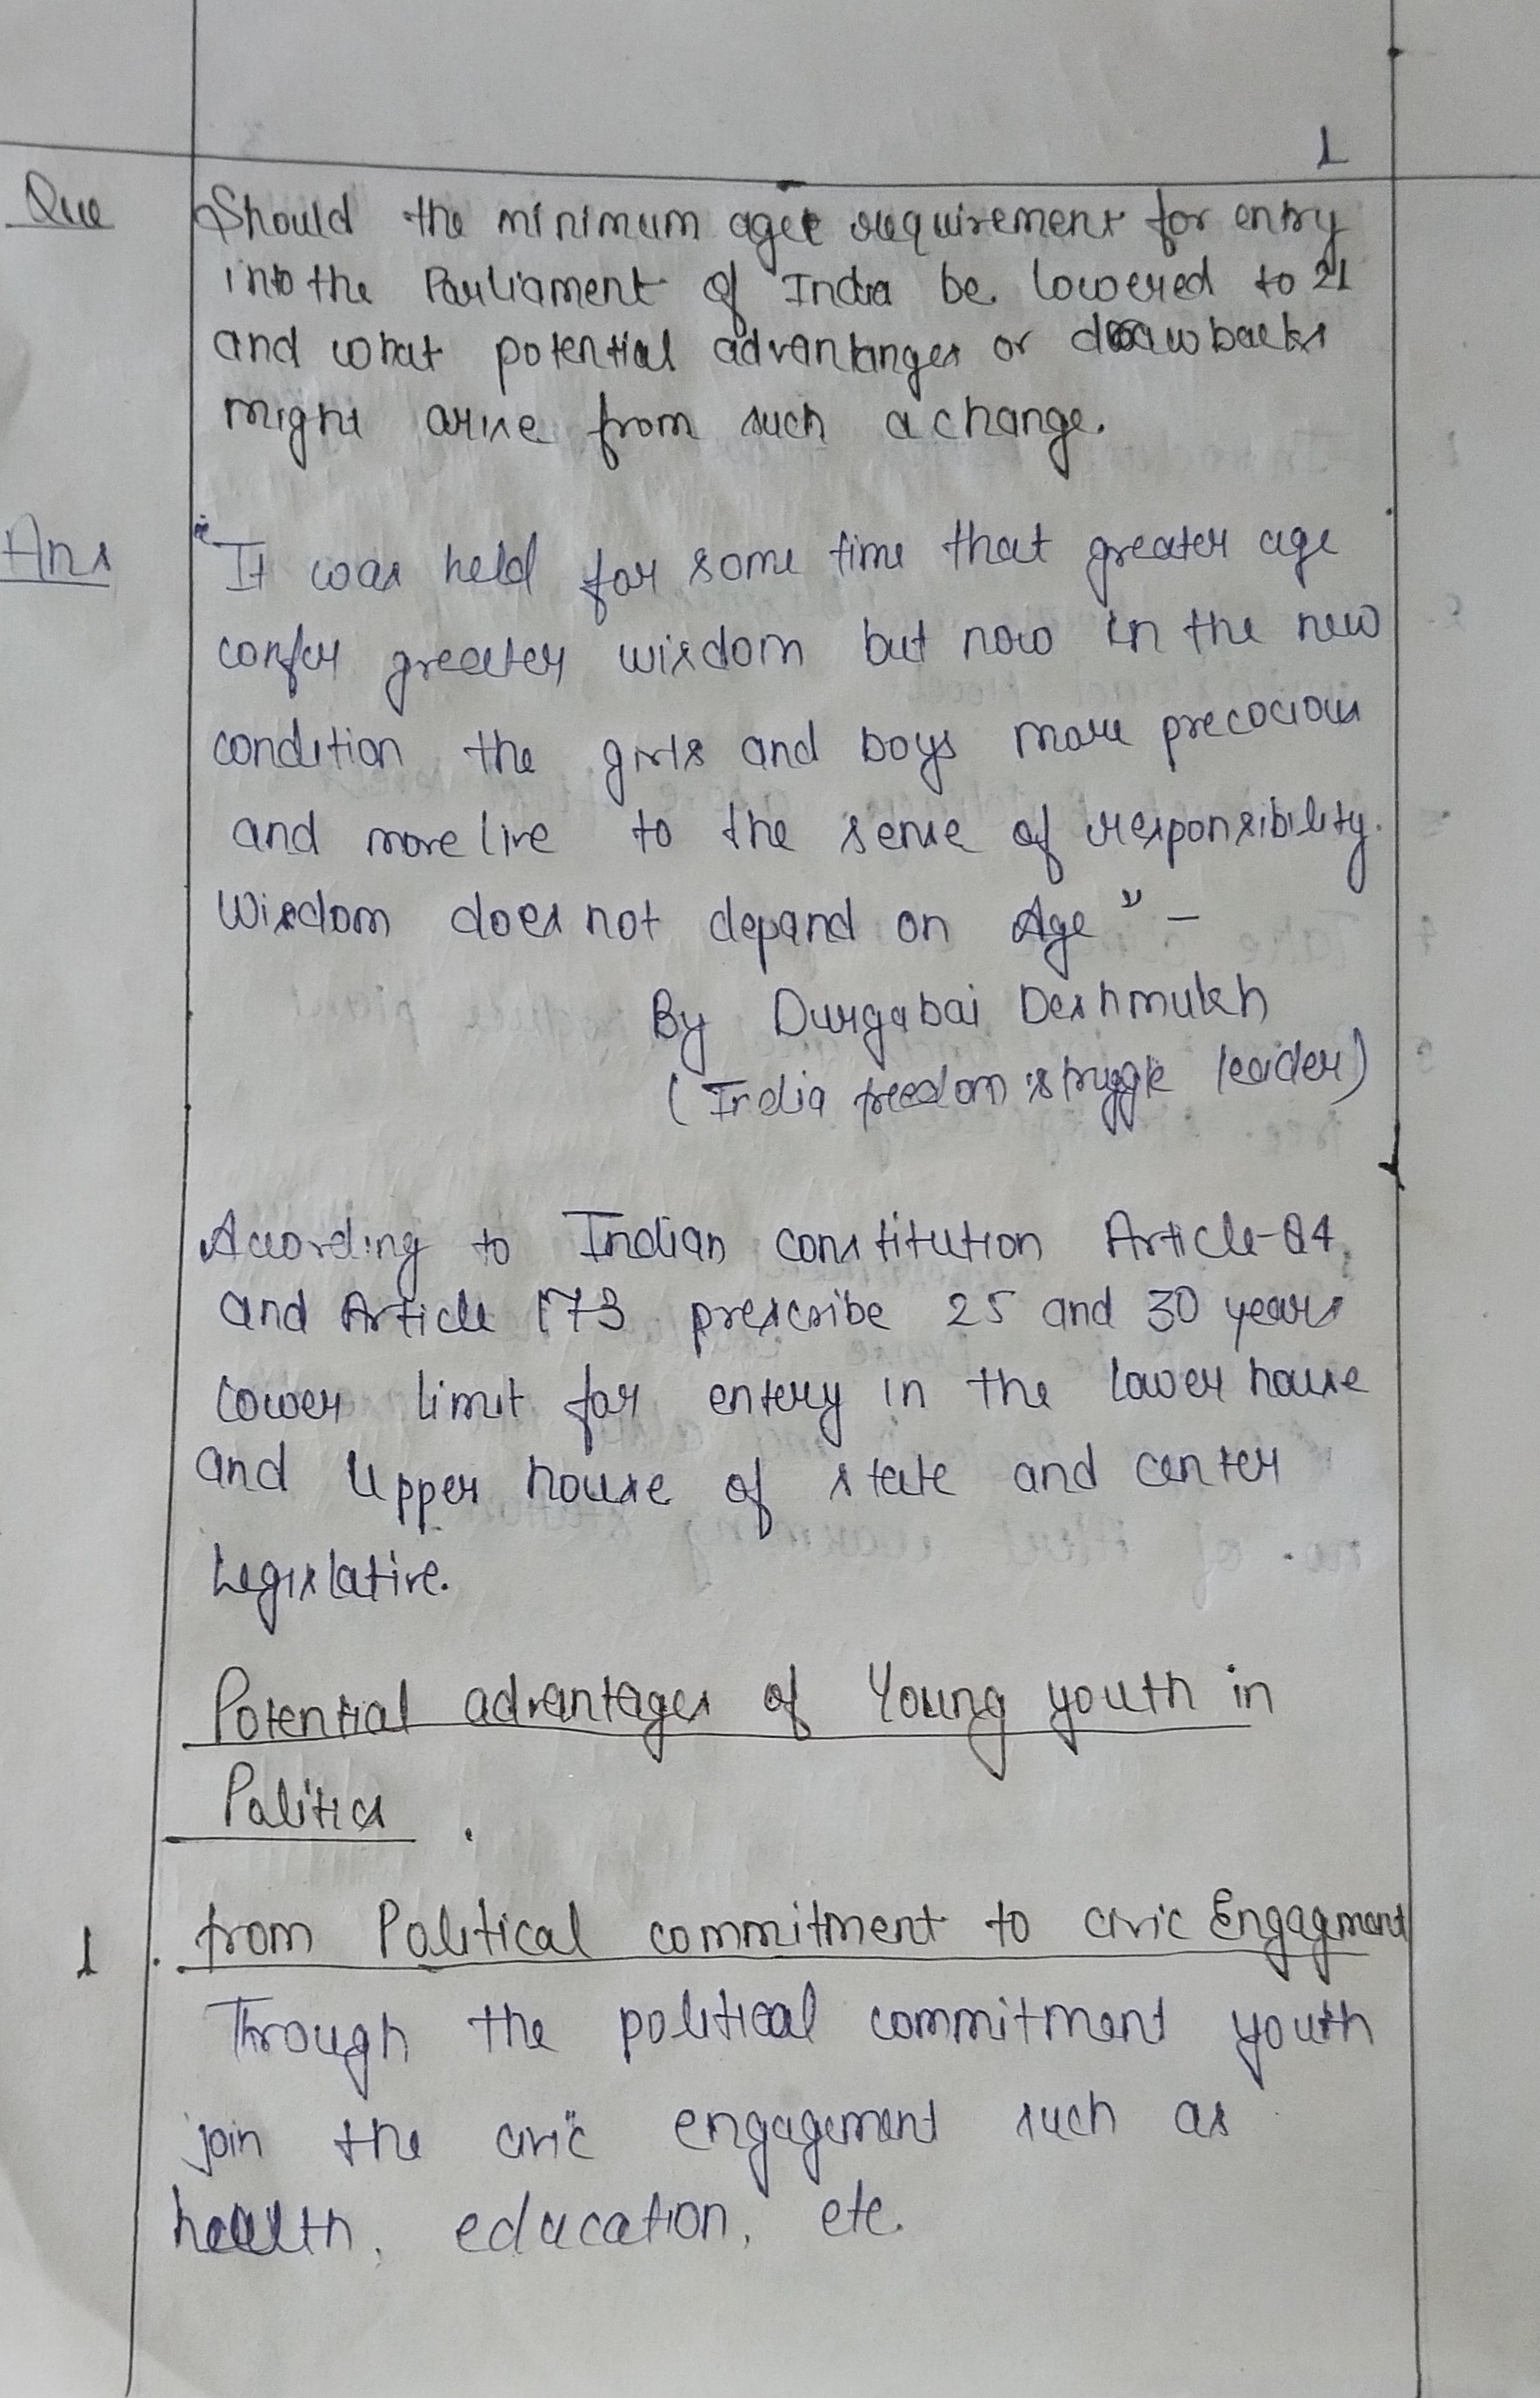 1
Que Should the minimum age requirement for entry
into the Parliament of India be lowered to 21
and what potential advantanges or drawbacks
might arise from such a change.
Ans "It was held for some time that greater age
confer greater wisdom but now in the new
condition the girls and boys more precocious
and more live to the sense of responsibility.
Wisdom does not depand on Age" -
By Durgabai Deshmukh
(India freedom struggle leader)
According to Indian constitution Article-84
and Article 173 prescribe 25 and 30 years
lower limit for entery in the lower house
and Upper house of state and center
Legislative.
Potential advantages of Young youth in
Politics.
1. from Political commitment to civic Engagment
Through the political commitment youth
join the civic engagement such as
health, education, etc.